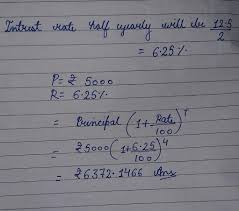 Intrest rate half yearly will be 12.5/2
= 6.25%
P = ₹ 5000
R = 6.25%
= Principal (1 + Rate/100)^T
= ₹5000 (1 + 6.25/100)^4
= ₹6372.1466 Ans